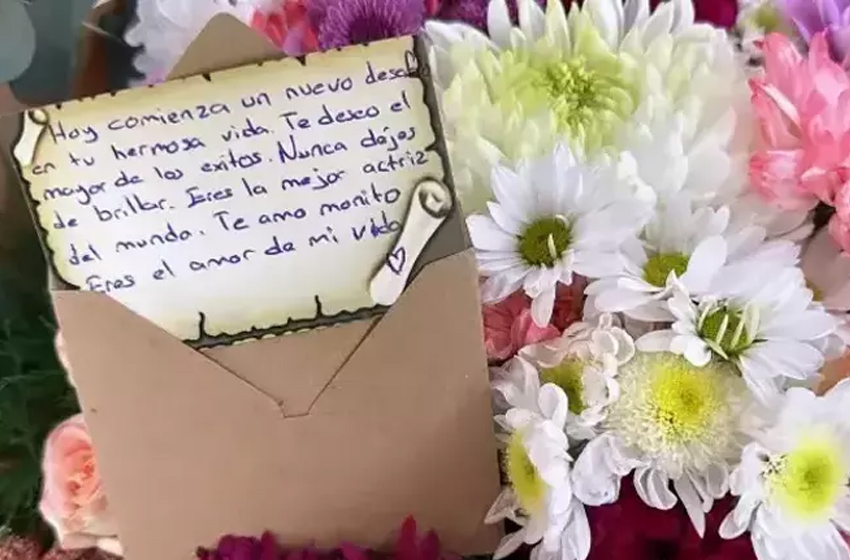 Hoy comienza un nuevo desafío
en tu hermosa vida. Te deseo el
mayor de los exitos. Nunca dejes
de brillar. Eres la mejor actriz
del mundo. Te amo monito
Eres el amor de mi vida